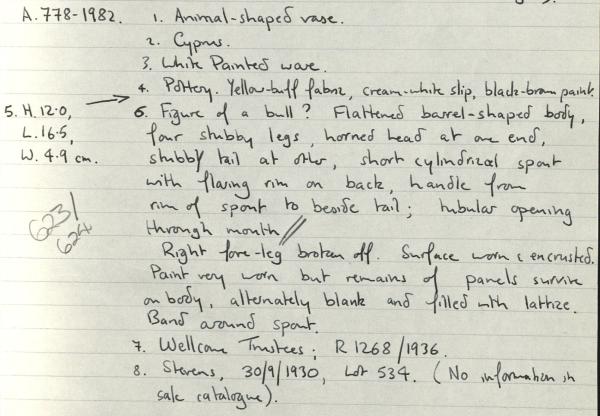 A.778-1982. 1. Animal-shaped vase.
2. Cyprus.
3. White Painted ware.
4. Pottery. Yellow-buff fabric, cream-white slip, black-brown paint.
5. H. 12.0, 6. Figure of a bull? Flattened barrel-shaped body,
L. 16.5, four stubby legs, horned head at one end,
W. 4.9 cm. stubby tail at other, short cylindrical spout
with flaring rim on back, handle from
rim of spout to beside tail; tubular opening
623/
624
through mouth //
Right fore-leg broken off. Surface worn & encrusted.
Paint very worn but remains of panels survive
on body, alternately blank and filled with lattice.
Band around spout.
7. Wellcome Trustees; R 1268/1936.
8. Stevens, 30/9/1930, Lot 534. (No information in
sale catalogue).